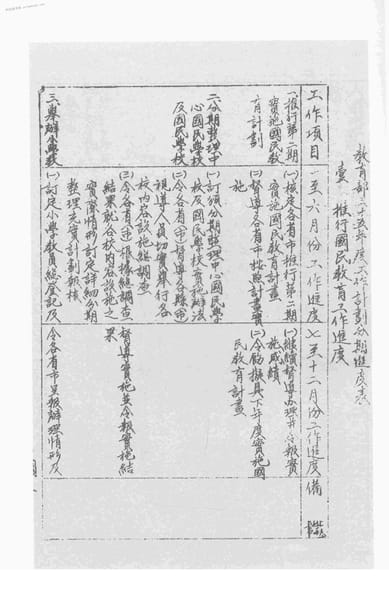 教育部三十五年度工作計劃分期進度表
壹 推行國民教育工作進度
工作項目
一至六月份工作進度
七至十二月份工作進度
備註
一、推行第二期
實施國民教
育計劃
(一)核定各省市推行第二期
實施國民教育計劃
(二)督導各省市按照計劃實
施
(一)繼續督導辦理并令報實
施成績
(二)令飭擬具下年度實施國
民教育計畫
二、分期整理中
心國民學校
及國民學校
(一)訂頒分期整理中心國民學
校及國民學校實施辦法
(二)令各省(市)督導各縣市
視導人員切實舉行各
校內容設施總調查
(三)令各省(市)根據總調查
結果就各校內容設施之
實際情形訂定詳細分期
整理充實計劃報核
督導實施并令報實施結
果
三、舉辦小學教
(一)訂定小學教員總登記及
令各省市呈報辦理情形及